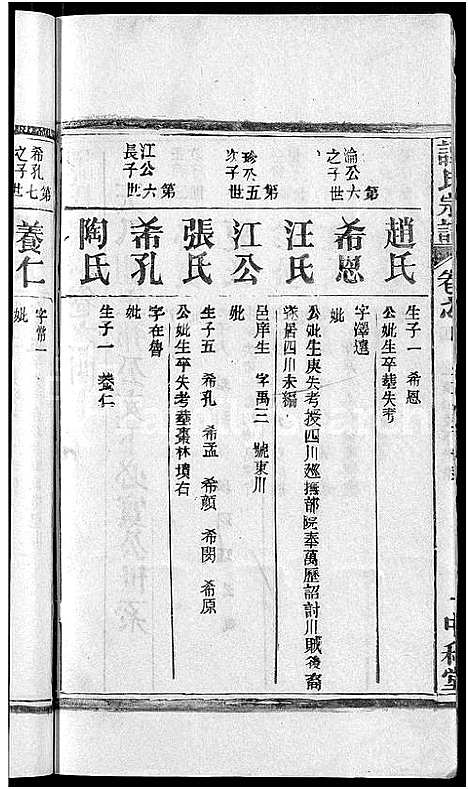 氏宗譜
卷之
中和堂
趙氏
生子一 希恩
公妣生卒塟失考
第六世
淪公之子
希恩
字澤遠
妣
汪氏
公妣生庚失考授四川廵撫部院奉萬歷詔討川賊後裔
落居四川未編
第五世
珍公次子
江公
邑庠生 字禹三 號東川
妣
張氏
生子五 希孔 希孟 希顔 希閔 希原
公妣生卒失考塟棗林墳右
第六世
江公長子
希孔
字在魯
妣
陶氏
生子一 養仁
第七世
希孔之子
養仁
字常一
妣